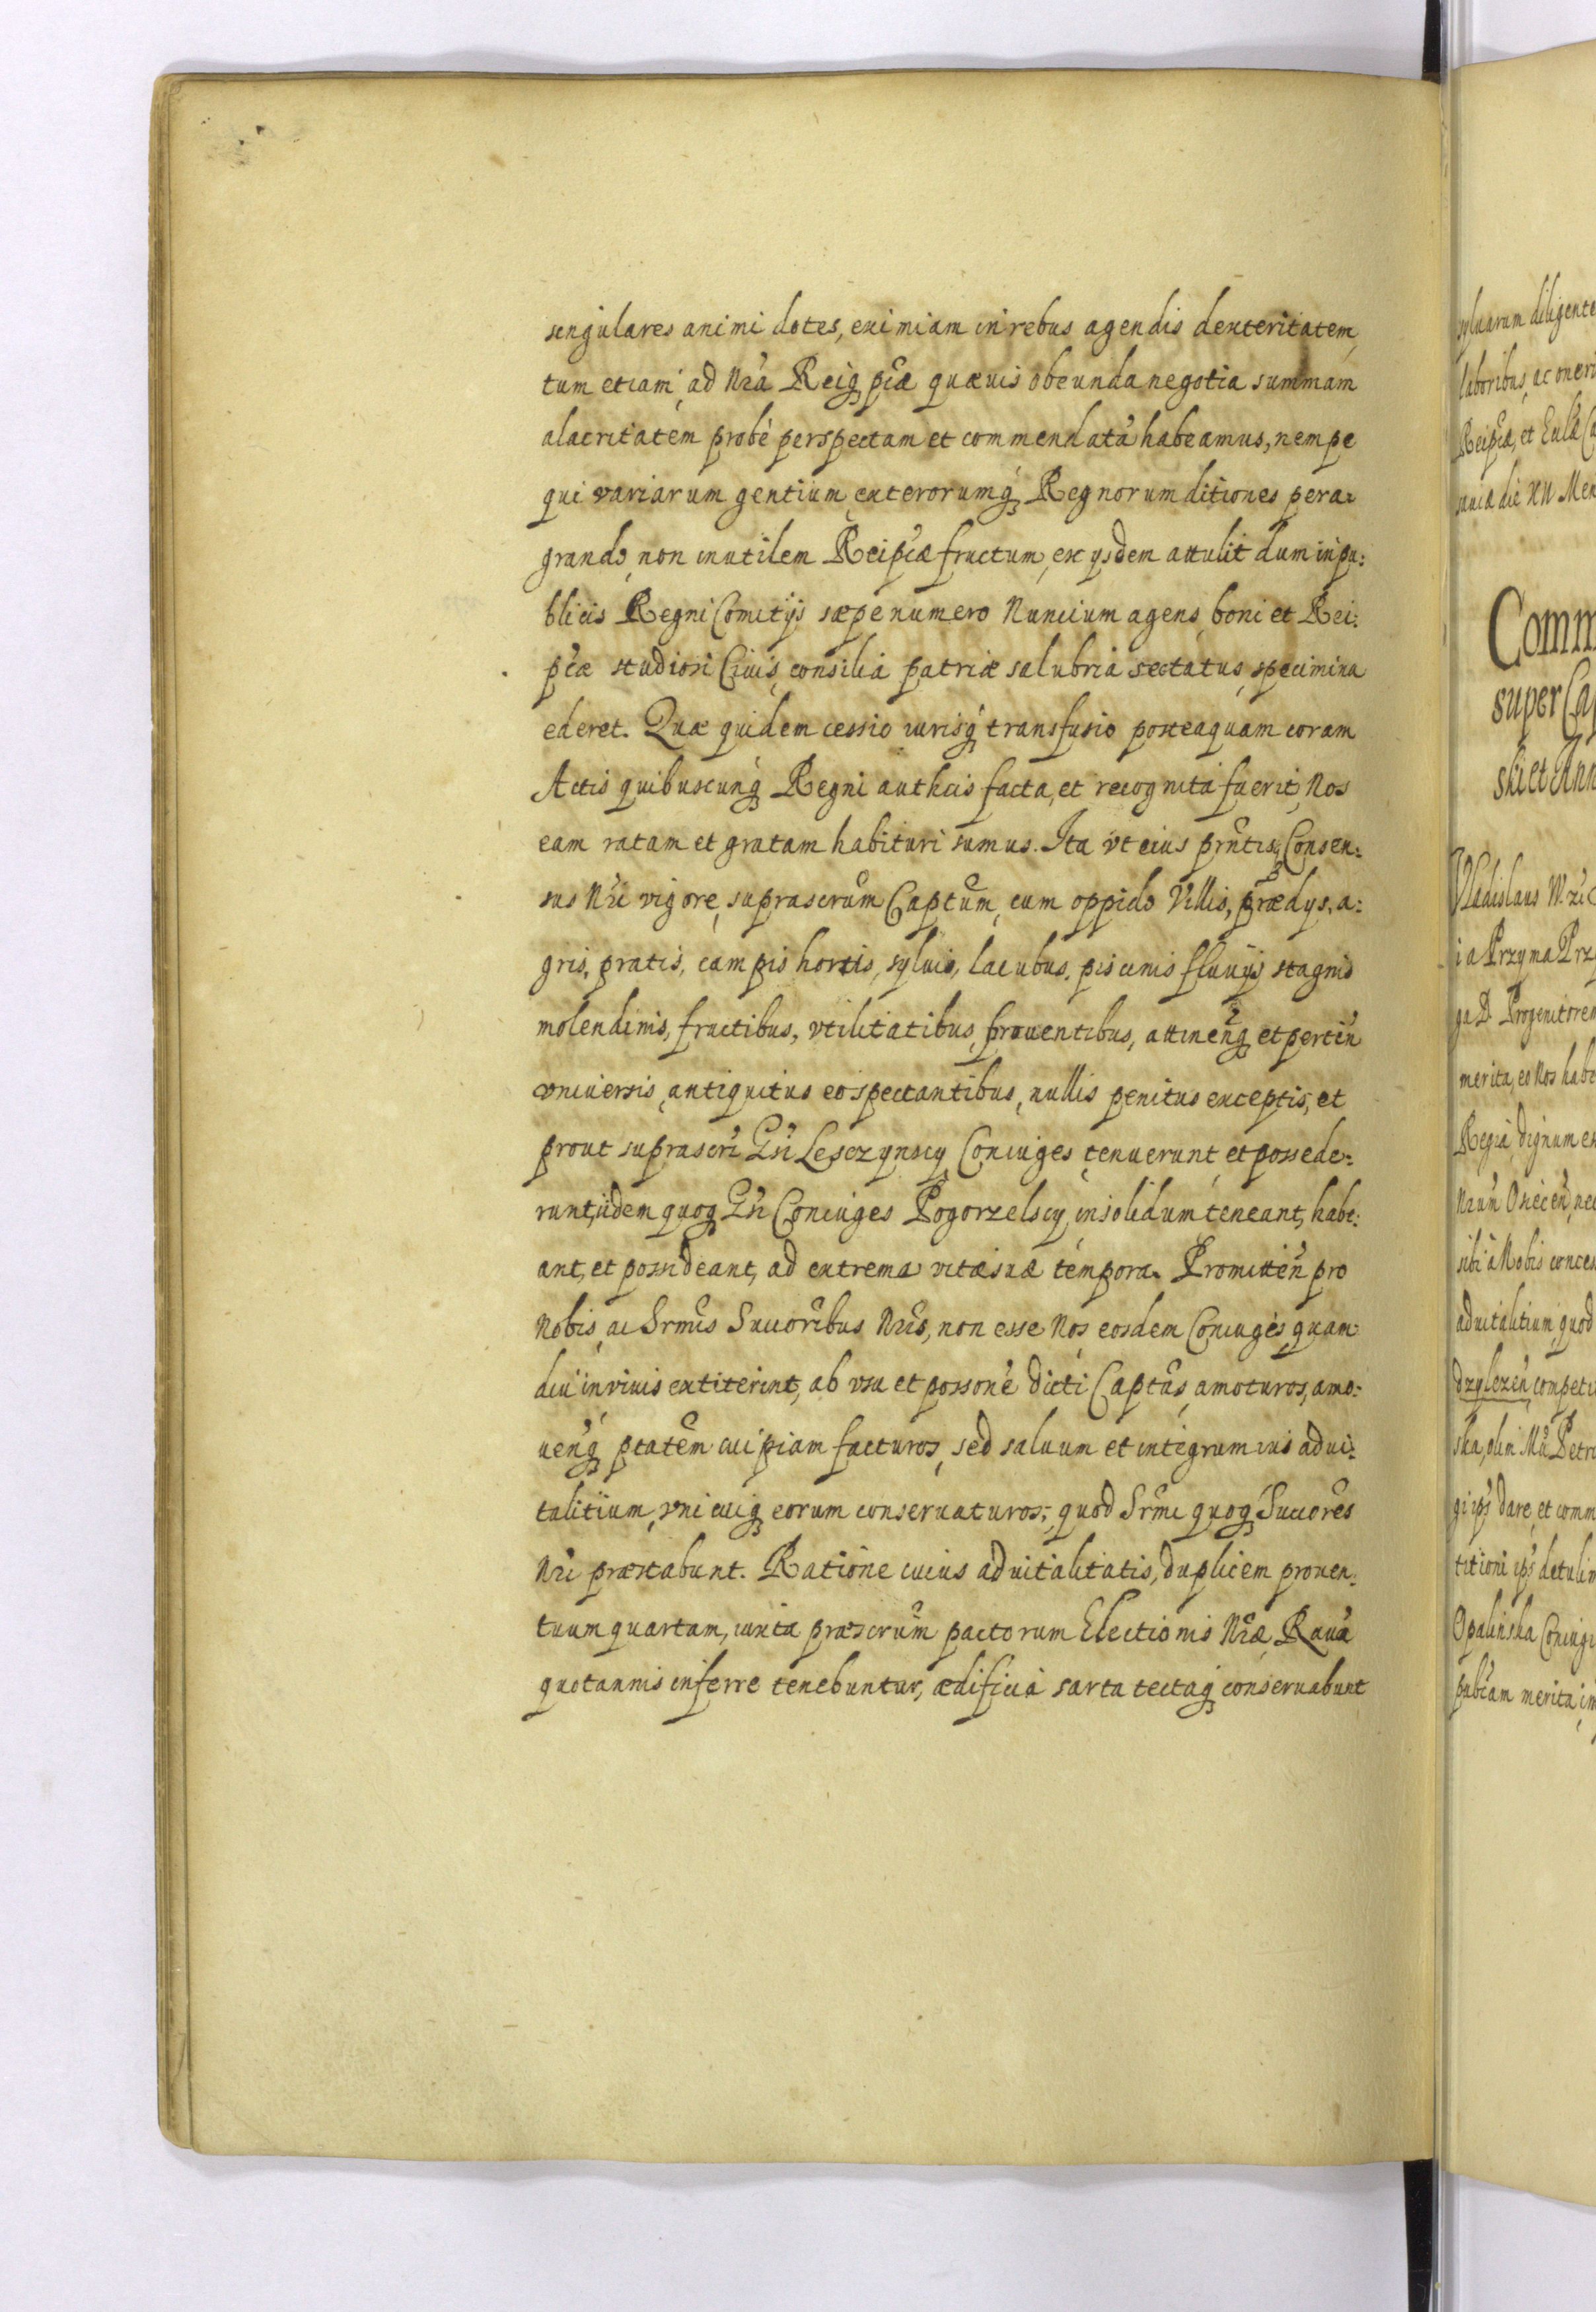 singulares animi dotes, eximiam in rebus agendis dexteritatem,
tum etiam, ad Nra Reiq pcæ quæuis obeunda negotia summam
alacritatem probè perspectam et commendatã habeamus, nempe
qui variarum gentium, exterorumq Regnorum ditiones pera-
grando, non inutilem Reipcæ fructum, ex ysdem attulit dum in pu:
blicis Regni Comitijs sæpe numero Nuncium agens, boni et Rei:
pcæ studiosi Ciuis, consilia patriæ salubria sectatus, specimina
ederet. Quæ quidem cessio iurisq transfusio posteaquam coram
Actis quibuscunq Regni authcis facta, et recognita fuerit, Nos
eam ratam et gratam habituri sumus. Ita vt eius prntis, Consen:
sus Nri vigore, suprascrum Captum, cum oppido Villis, prædys, a:
gris, pratis, campis hortis, syluis, lacubus, piscinis fluuijs stagnis
molendinis, fructibus, vtilitatibus, prouentibus, attinenq et pertin
vniuersis, antiquitus eo spectantibus, nullis penitus exceptis, et
prout suprascri Gsi Lesczynscy Coniuges tenuerunt, et possede:
runt, iidem quoq Gsi Coniuges Pogorzelscy, in solidum teneant, habe:
ant, et possideant, ad extrema vitæ suæ tempora. Promitten pro
Nobis, ac Srmis Succoribus Nris, non esse Nos eosdem Coniuges, quam
diu in viuis extiterint, ab vsu et possone dicti Captus, amoturos, amo:
uenq ptatem cuipiam facturos, sed saluum et integrum ius adui:
talitium, vni cuiq eorum conseruaturos; quod Srmi quoq Succores
Nri præstabunt. Ratione cuius aduitalitatis, duplicem prouen:
tuum quartam, iuxta præscrum pactorum Electionis Nræ, Rauã
quotannis inferre tenebuntur, ædificia sarta tectaq conseruabunt
syluarum diligente
laboribus, ac oneri
Reipcæ, et Eccl
die XII Men
Comm
super Cap
ski et Ann
Vladislaus
ia Przyma Prz
ga D. Progenitorem
merita, eo Nos habe
Regia, dignum ex
sibi à Nobis conces
aduitalitium, quod
competi
ska, olim Petri
gi ips dare, et comm
titioni ips detulim
Opalinska Coniugi
pubcam merita, im